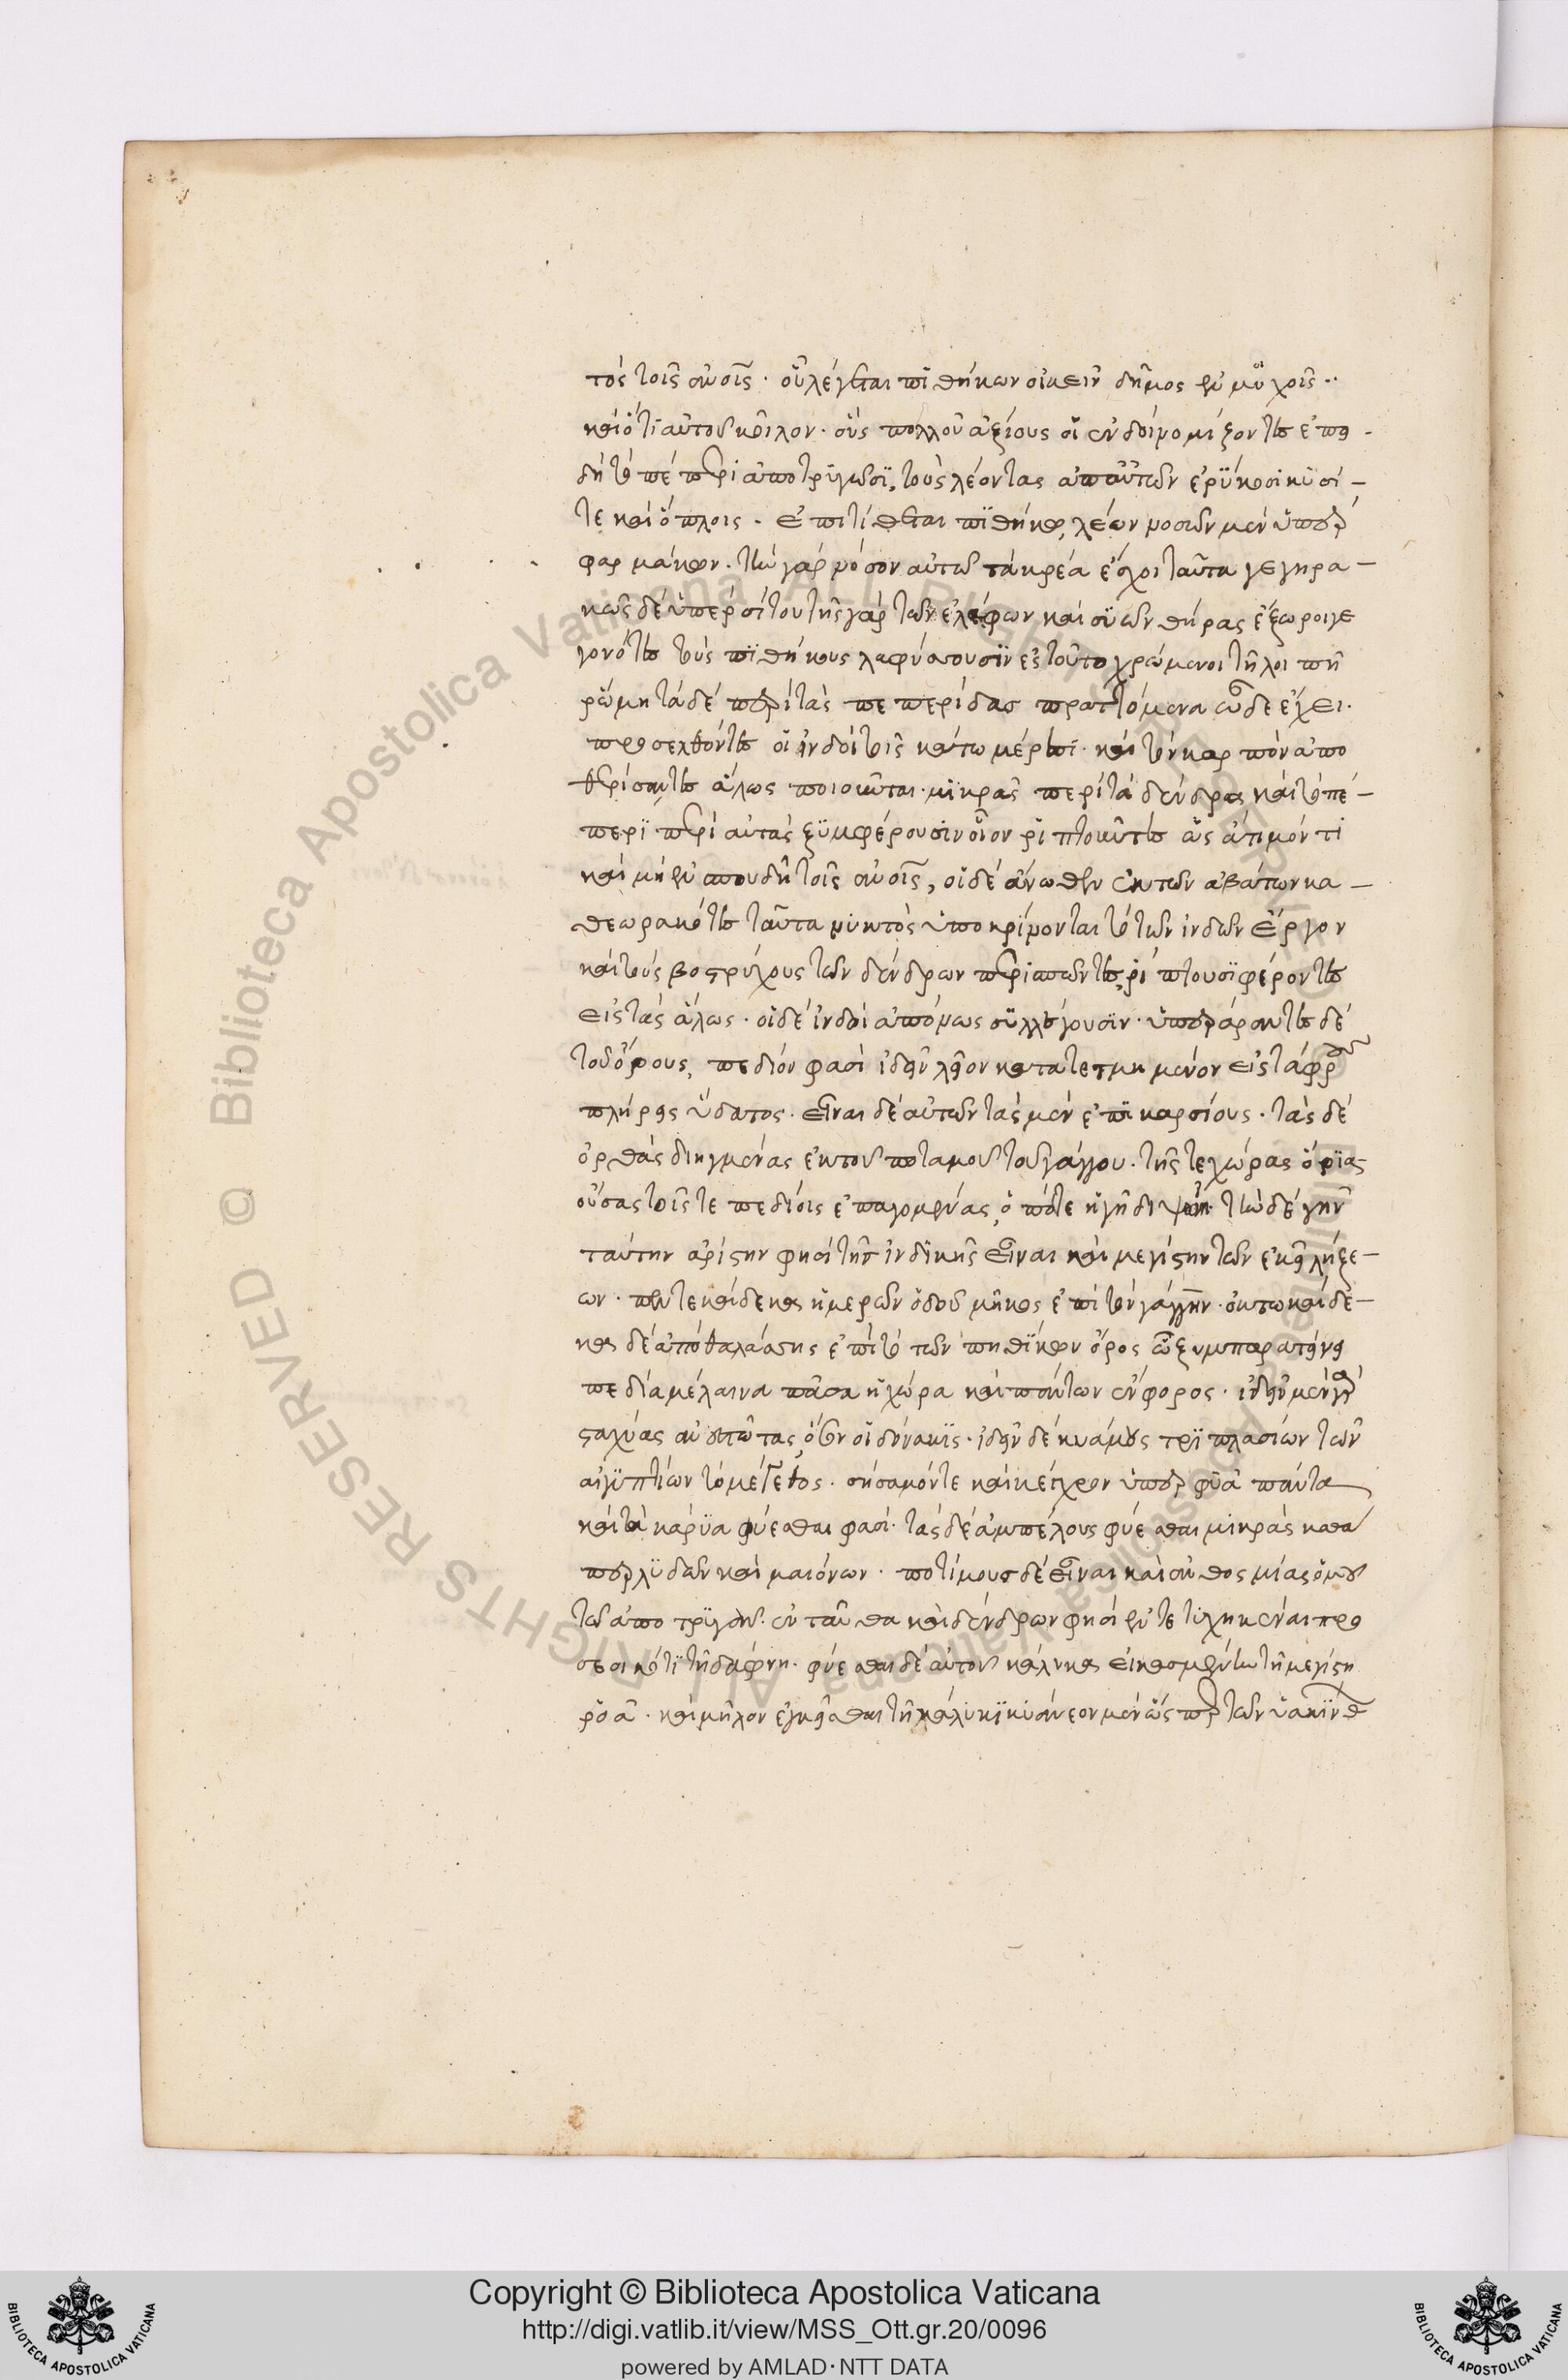 τὸς τοῖς ἀν οἷς. οὗ λέγεται πιθήκων οἰκεῖν δῆμος ἐν μυχοῖς..
καὶ ὅτι αὐτοῦ κοῖλον. οὓς πολλοῦ ἀξίους οἱ ἰνδοὶ νομίζοντες ἐπει
δὴ τὸ πέπερι ἀποτρυγῶσι, τοὺς λέοντας ἀπ αὐτῶν ἐρύκουσι κυσί –
τε καὶ ὅπλοις. ἐπιτίθεται πιθήκῳ, λέων νοσῶν μὲν ὑπὲρ
φαρμάκου. τὴν γὰρ νόσον αὐτῷ τὰ κρέα ἐσχοι ταῦτα γεγηρα –
κὼς δὲ ὑπὲρ σίτου τῆς γὰρ τῶν ἐλάφων καὶ συῶν θήρας ἔξωροι γε
γονότες τοὺς πιθήκους λαφύσσουσιν ἐς τοῦτο χρώμενοι τῇ λοιπῇ
ῥώμῃ τὰ δὲ περὶ τὰς πεπερίδας πραττόμενα ὧδε ἔχει.
προσελθόντες οἱ ἰνδοὶ τοῖς κάτω μέρεσι. καὶ τὸν καρπὸν ἀπο
θερίσαντες ἅλως ποιοῦνται μικρὰς περὶ τὰ δένδρα καὶ τὸ πέ –
περι περὶ αὐτὰς ξυμφέρουσιν οἷον ῥιπτοῦντες ὡς ἄτιμόν τι
καὶ μὴ ἐν σπουδῇ τοῖς ἀν οἷς, οἱ δὲ ἄνωθεν ἐκ τῶν ἀβάτων κα –
θεωρακότες ταῦτα νυκτὸς ὑποκρίνονται τὸ τῶν ἰνδῶν ἔργον
καὶ τοὺς βοστρύχους τῶν δένδρων περισπῶντες, ῥίπτουσι φέροντες
εἰς τὰς ἅλως. οἱ δὲ ἰνδοὶ ἀπόνως συλλέγουσιν. ὑπεράραντες δὲ
τοῦ ὄρους, πεδίον φασὶ ἰδεῖν λεῖον κατατετμημένον εἰς τάφρους
πλήρεις ὕδατος. εἶναι δὲ αὐτῶν τὰς μὲν ἐπικαρσίους. τὰς δὲ
ὀρθὰς διηγμένας ἐκ τοῦ ποταμοῦ τοῦ γάγγου. τῆς τε χώρας ὅρια
οὔσας τοῖς τε πεδίοις ἐπαγομένας, ὁπότε ἡ γῆ διψῴη. τὴν δὲ γῆν
ταύτην ἀρίστην φησὶ τῆς ἰνδικῆς εἶναι καὶ μεγίστην τῶν ἐκεῖ λήξε –
ων. πεντεκαίδεκα ἡμερῶν ὁδοῦ μῆκος ἐπὶ τὸν γάγγην. ὀκτωκαίδε –
κα δὲ ἀπὸ θαλάσσης ἐπὶ τὸ τῶν πιθήκων ὄρος ᾧ ξυμπαρατείνει
πεδία μέλαινα πᾶσα ἡ χώρα καὶ πάντων εὔφορος. ἰδεῖν μὲν γὰρ
σταχύας ἀνεστῶτας, ὅσον οἱ δόνακες. ἰδεῖν δὲ κυάμους τριπλασίων τῶν
αἰγυπτίων τὸ μέγεθος. σήσαμόν τε καὶ κέγχρον ὑπερφυᾶ πάντα
καὶ τὰ κάρυα φύεσθαι φασί. τὰς δὲ ἀμπέλους φύεσθαι μικρὰς καθὰ
περ λυδῶν καὶ μαιόνων. ποτίμους δὲ εἶναι καὶ ἀνθοσμίας ὁμοῦ
τῷ ἀποτρυγᾶν. ἐνταῦθα καὶ δένδρων φησὶ ἐντετυχηκέναι προ
σεοικότι τῇ δάφνῃ. φύεσθαι δὲ αὐτοῦ κάλυκα εἰκασμένην τῇ μεγίστῃ
ῥόᾳ. καὶ μῆλον ἐγκεῖσθαι τῇ κάλυκι κυάνεον μὲν ὥσπερ τῶν ὑακίνθ
Copyright © Biblioteca Apostolica Vaticana
http://digi.vatlib.it/view/MSS_Ott.gr.20/0096
powered by AMLAD·NTT DATA